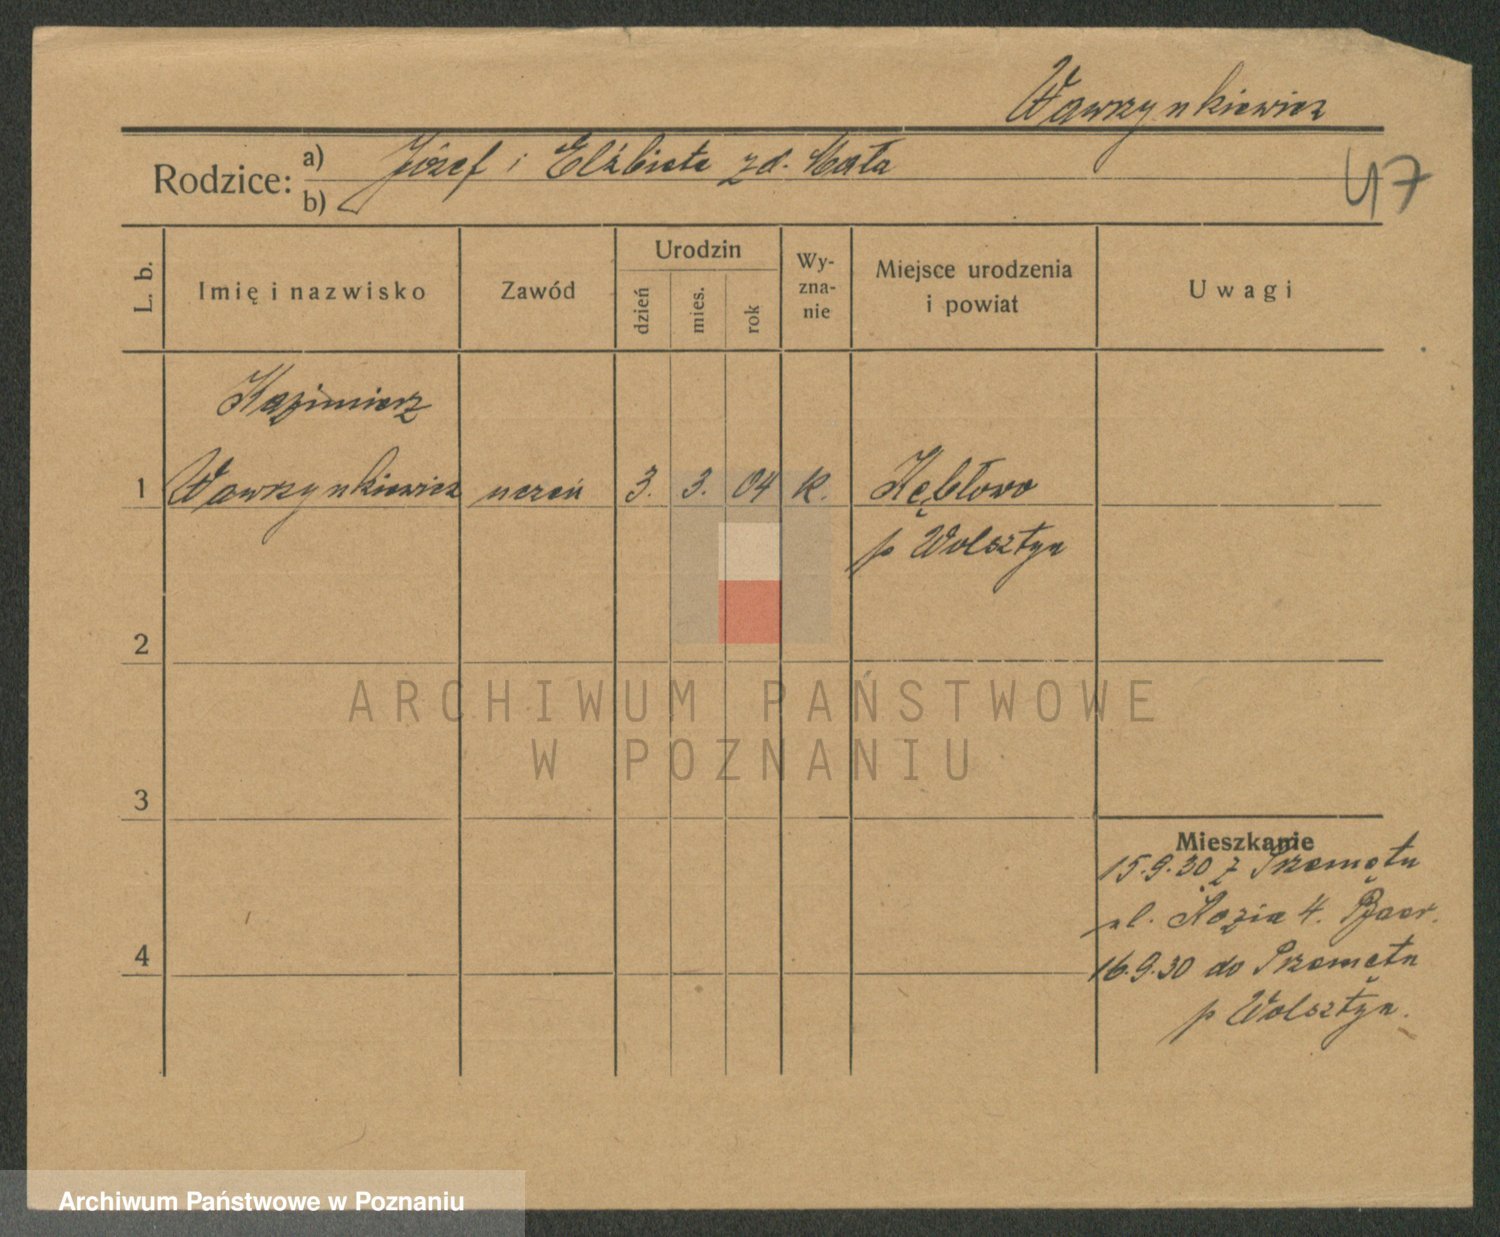 Wawrzynkiewicz
47
Rodzice: a) Józef i Elżbieta zd. Mała
b)
L. b.
Imię i nazwisko
Zawód
Urodzin
dzień
mies.
rok
Wy-
zna-
nie
Miejsce urodzenia
i powiat
Uwagi
Kazimierz
1 Wawrzynkiewicz uczeń 3. 3. 04 k. Kębłowo
p Wolsztyn
2
3
4
Mieszkanie
15.9.30 z Przemętu
ul. Kozia 4.
16.9.30 do Przemętu
p Wolsztyn.
ARCHIWUM PAŃSTWOWE
W POZNANIU
Archiwum Państwowe w Poznaniu